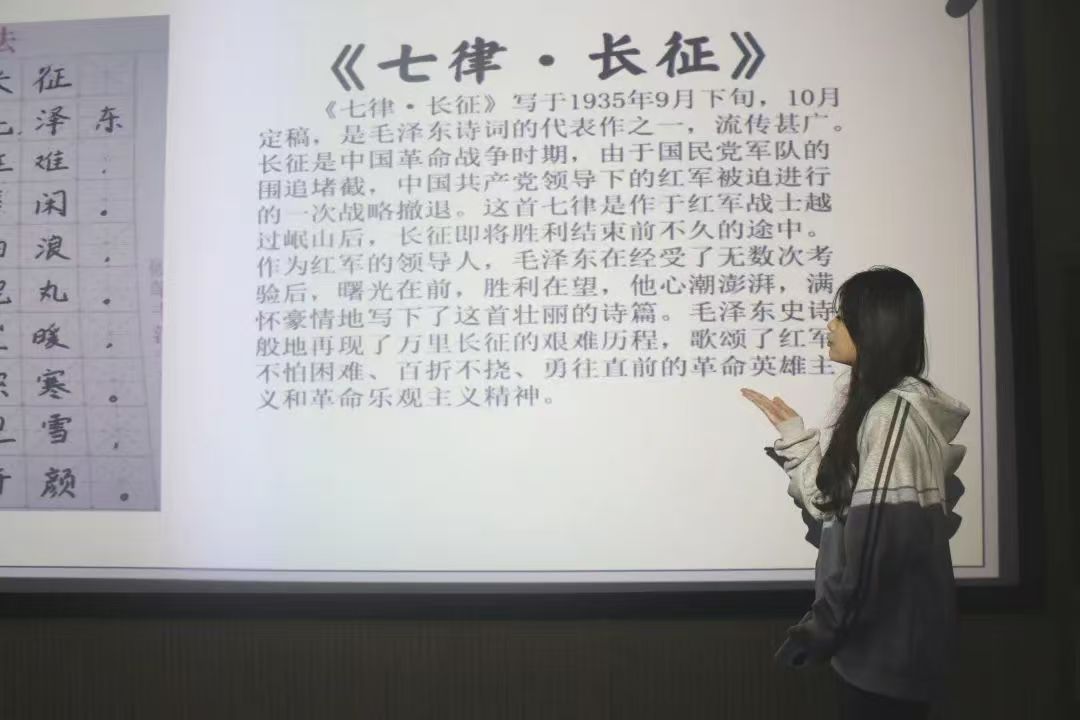 征
泽东
难，
闲。
浪，
丸。
暖，
寒。
雪，
颜。
《七律·长征》
《七律·长征》写于1935年9月下旬，10月
定稿，是毛泽东诗词的代表作之一，流传甚广。
长征是中国革命战争时期，由于国民党军队的
围追堵截，中国共产党领导下的红军被迫进行
的一次战略撤退。这首七律是作于红军战士越
过岷山后，长征即将胜利结束前不久的途中。
作为红军的领导人，毛泽东在经受了无数次考
验后，曙光在前，胜利在望，他心潮澎湃，满
怀豪情地写下了这首壮丽的诗篇。毛泽东史诗
般地再现了万里长征的艰难历程，歌颂了红军
不怕困难、百折不挠、勇往直前的革命英雄主
义和革命乐观主义精神。